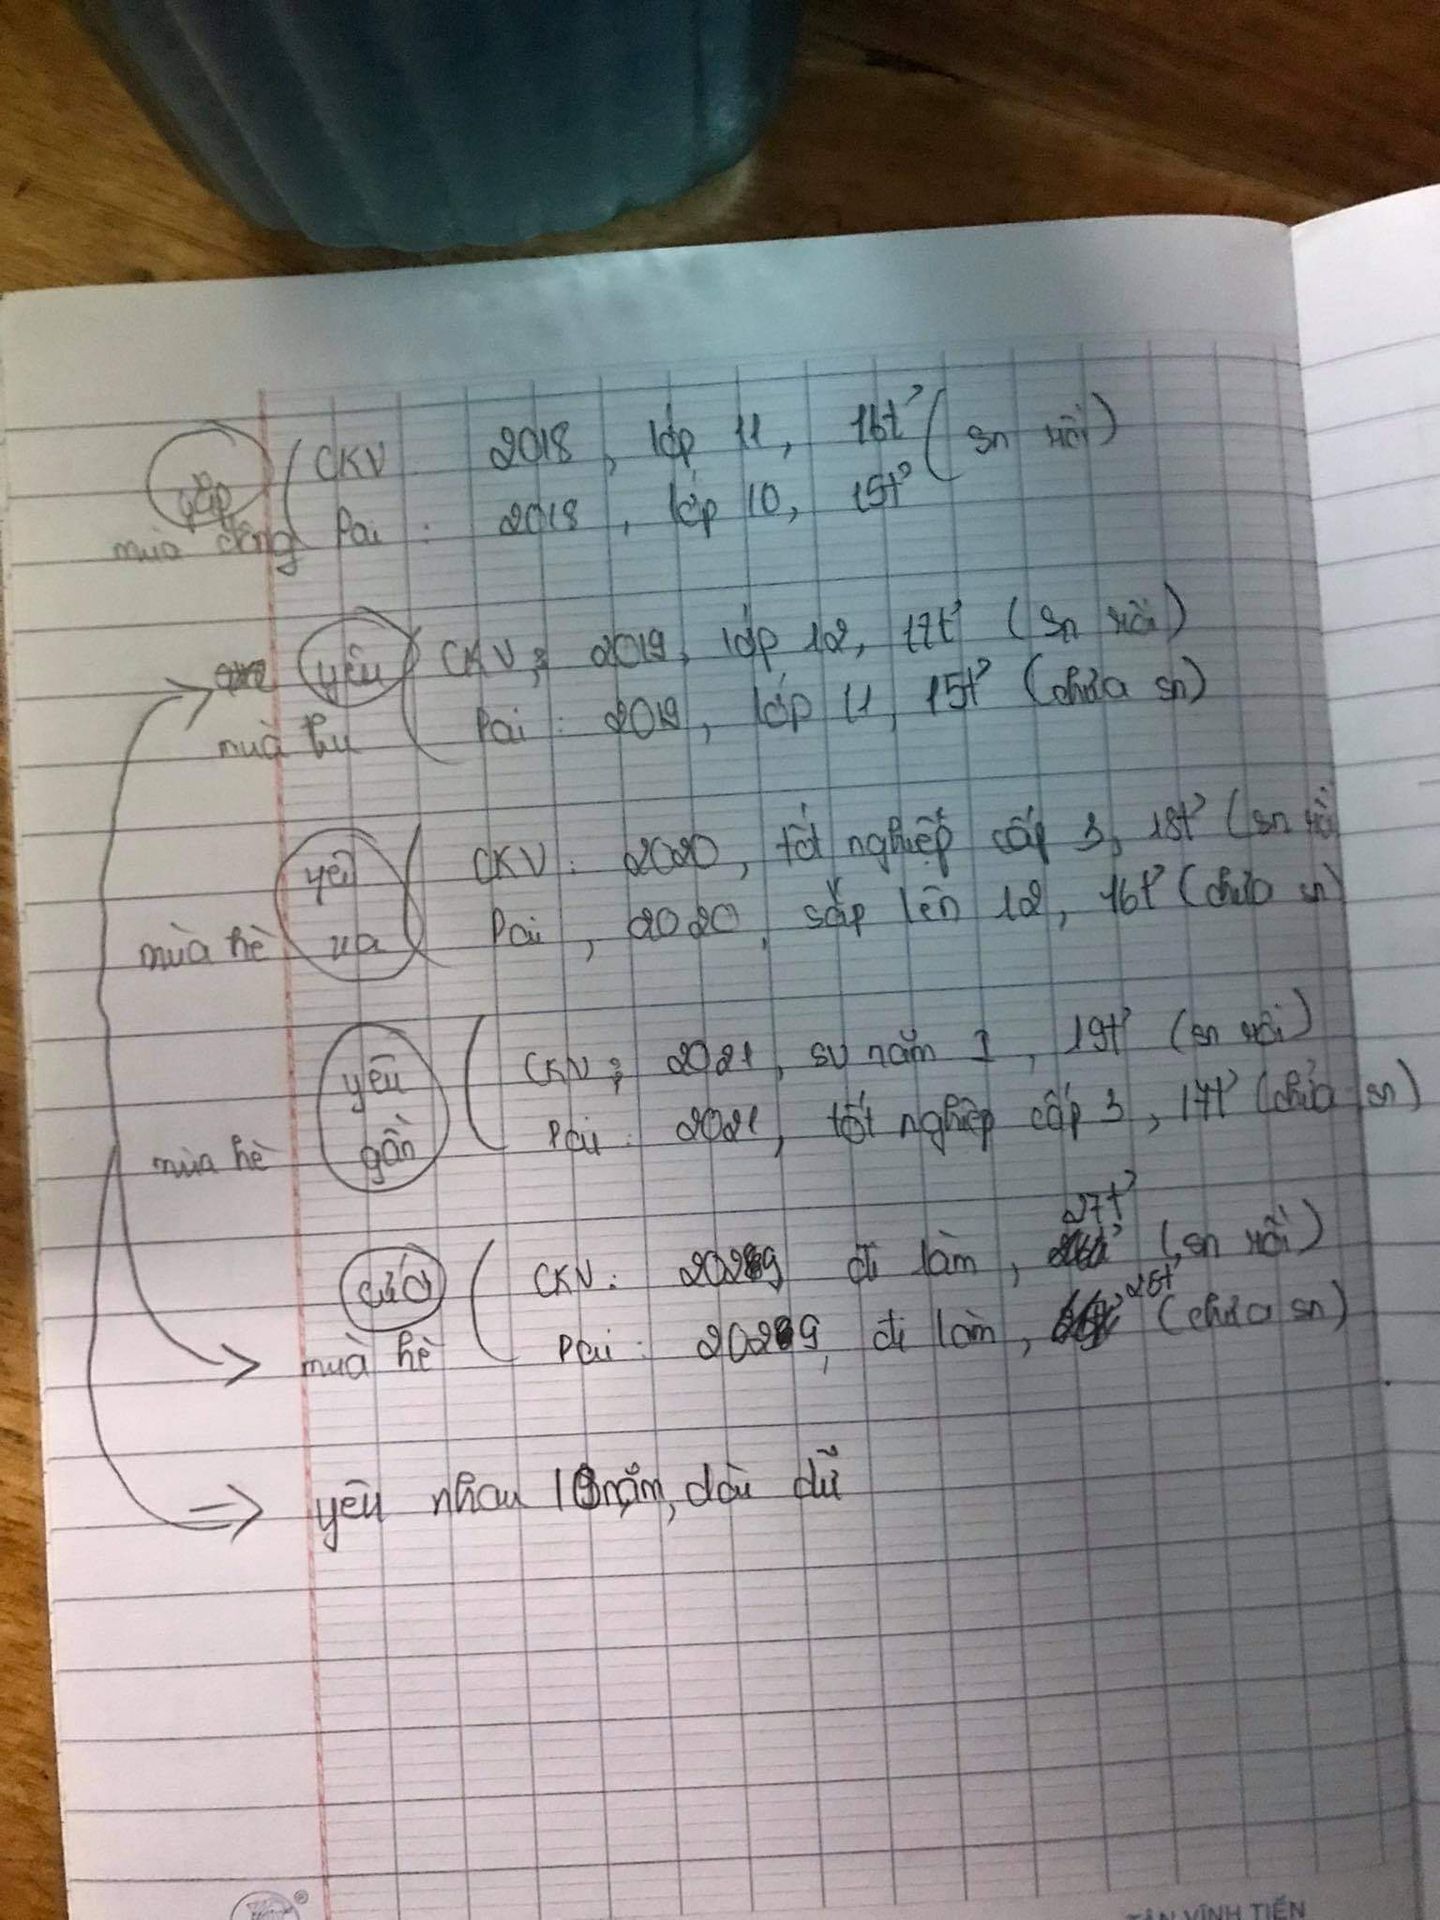 gặp ( CKV 2018, lớp 11, 16t' (sn rồi)
mùa đông Pai : 2018, lớp 10, 15t'
yêu ( CKV : 2019, lớp 12, 17t' (sn rồi)
mùa thu Pai : 2019, lớp 11, 15t' (chưa sn)
yêu ( CKV : 2020, tốt nghiệp cấp 3, 18t' (sn rồi
mùa hè xa Pai, 2020, sắp lên 12, 16t' (chưa sn)
yêu ( CKV : 2021, sv năm 1, 19t' (sn rồi)
mùa hè gần Pai : 2021, tốt nghiệp cấp 3, 17t' (chưa sn)
27t'
cưới ( CKV : 2029 đi làm, (sn rồi)
mùa hè Pai : 2029, đi làm, 25t' (chưa sn)
=> yêu nhau 10 năm, dài dữ
TÂN VĨNH TIẾN